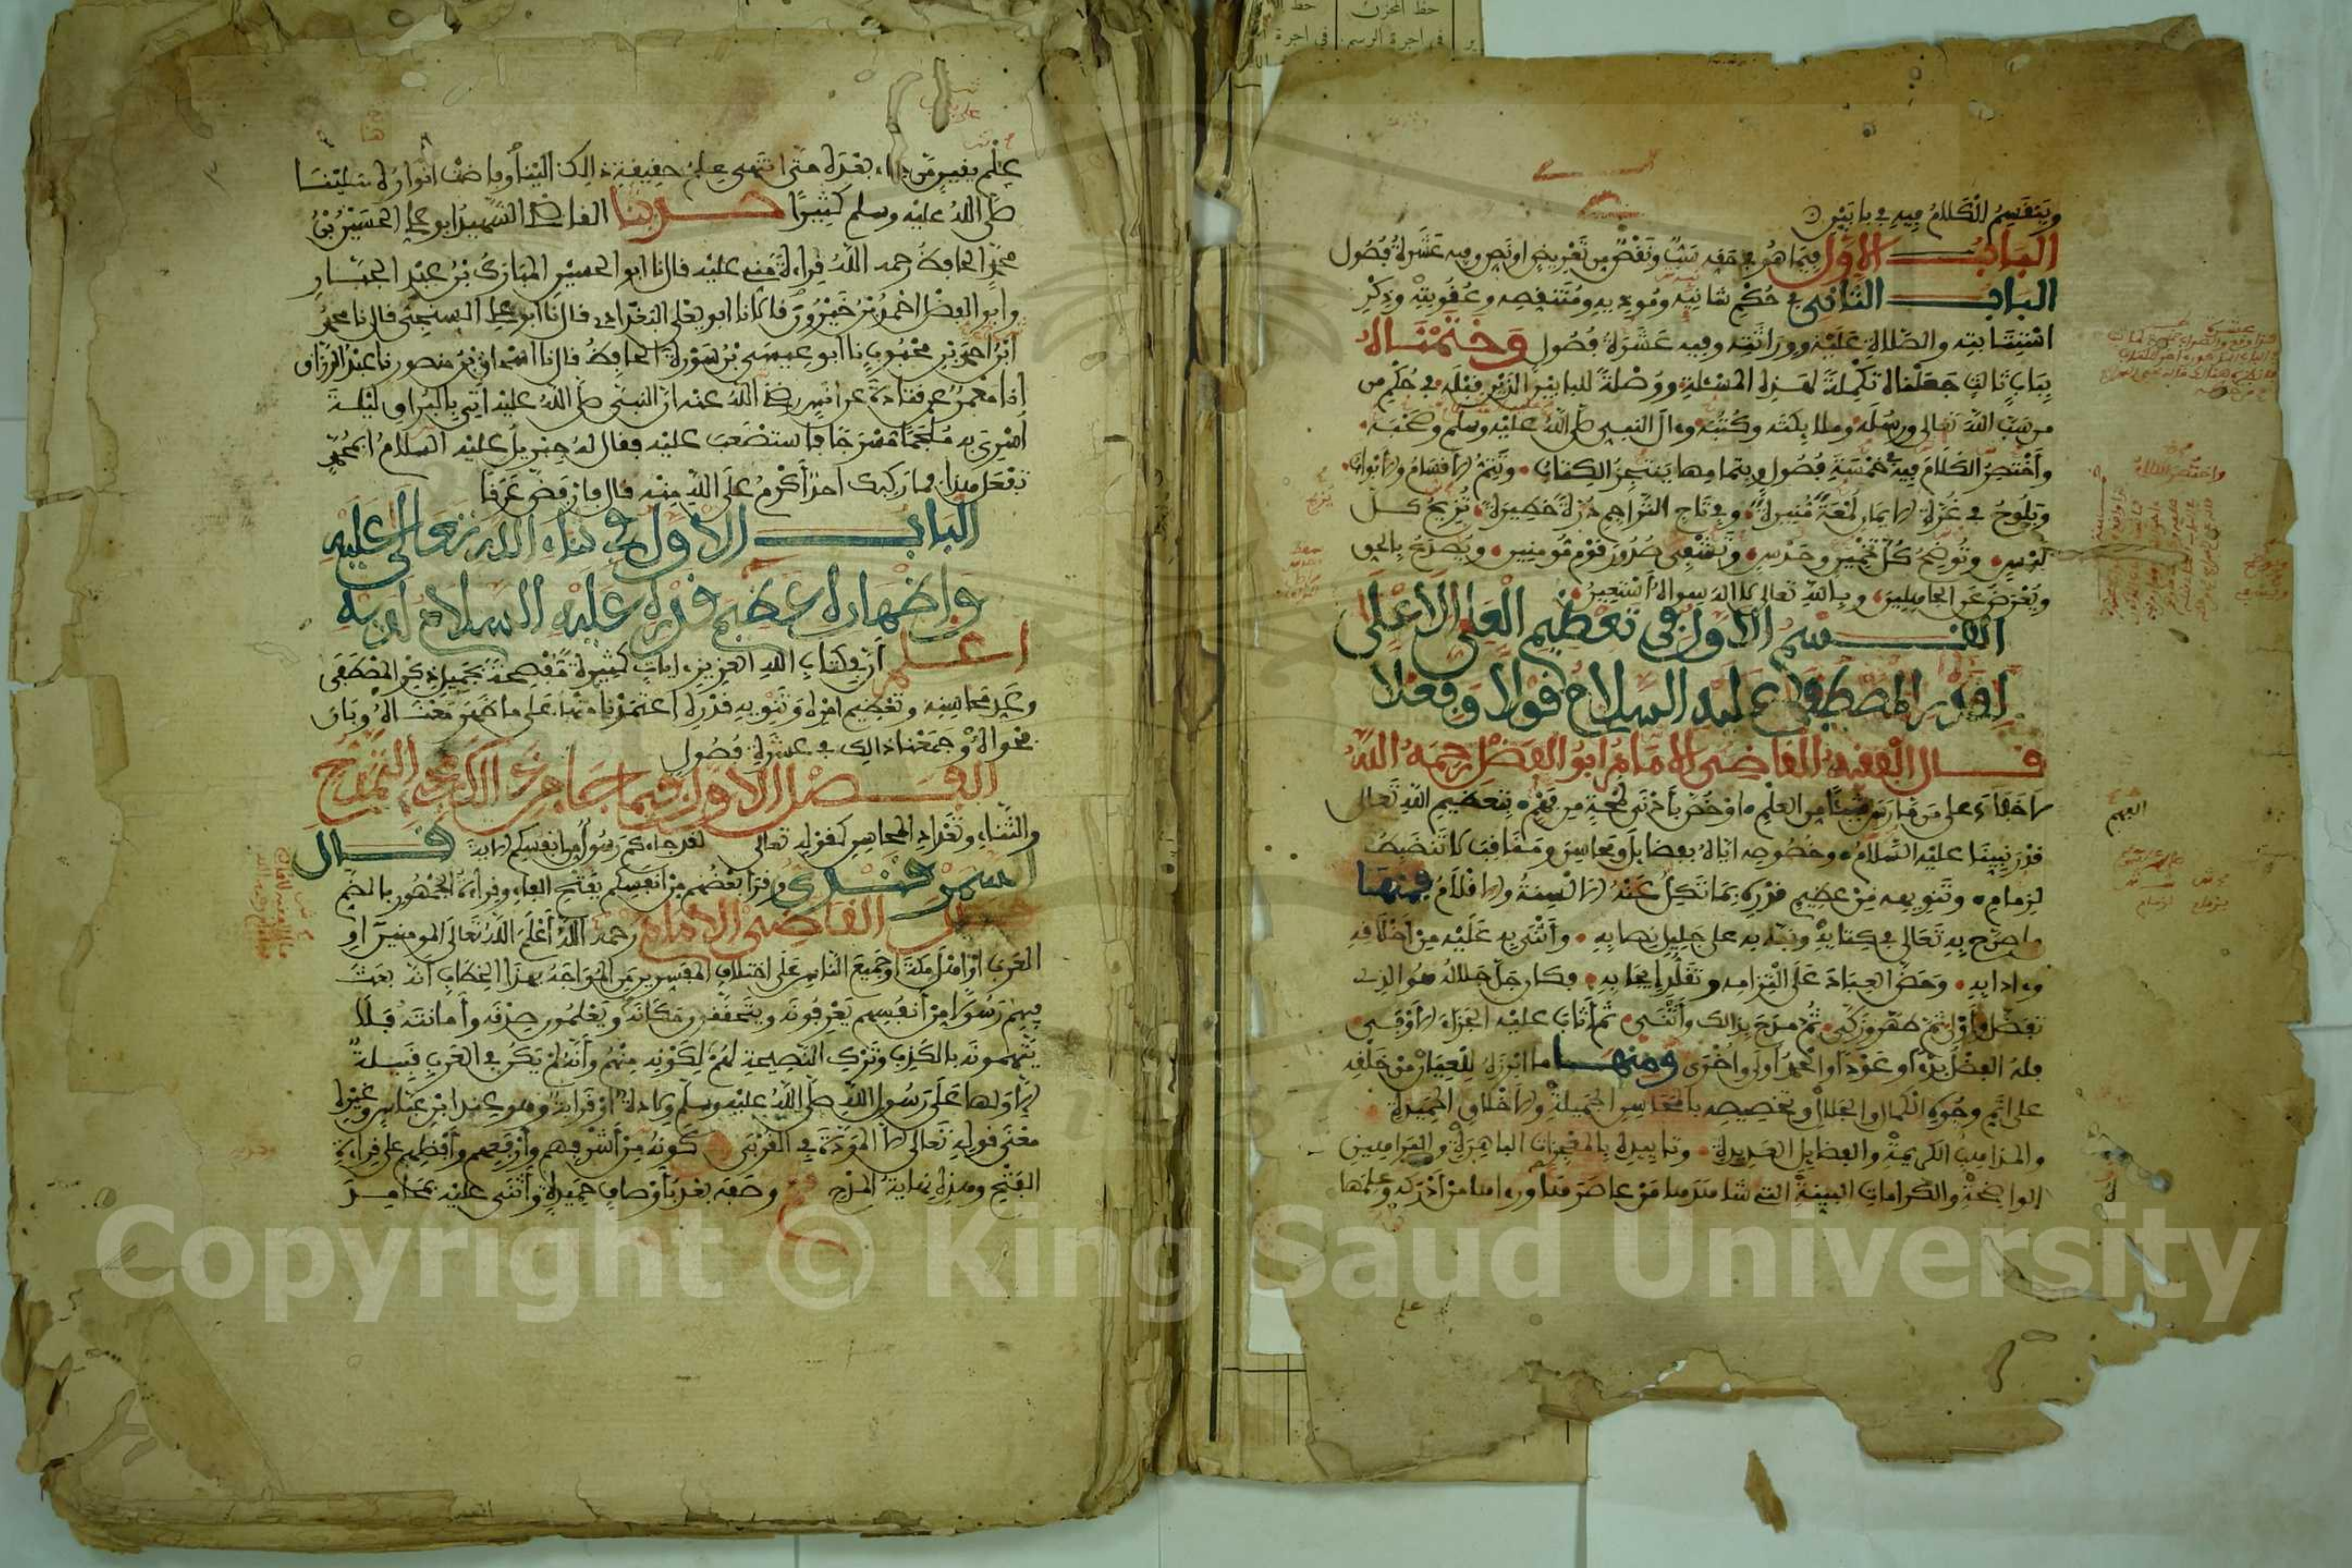 وينقسم الكلام فيه في بابين
الباب الاول فيما هو في حقه سب ونقص من تعريض او نص وفيه عشرة فصول
الباب الثاني في حكم شانيه وموذيه ومتنقصه وعقوبته وذكر
استتابته والصلاة عليه ووراثته وفيه عشرة فصول وختمناه
بباب ثالث جعلناه تكملة لهذه المسئلة ووصلة للبابين الذين قبله في حكم من
من سب الله تعالى ورسله وملايكته وكتبه وءال النبي صلى الله عليه وسلم وصحبه
واختصر الكلام فيه في خمسة فصول وبتمامها ينتجز الكتاب وتتم الاقسام والابواب
ويلوح في غرة الايمان لمعة منيرة وفي تاج التراجم درة خطيرة تزيح كل
لبس وتوضح كل تخمين وحدس وتشفي صدور قوم مومنين ويصدع بالحق
ويعرض عن الجاهلين وبالله تعالى لا اله سواه استعين
القسم الاول في تعظيم العلي الاعلى
لقدر المصطفى عليه السلام قولا وفعلا
قال الفقيه القاضي الامام ابو الفضل رحمه الله
لا خفاء على من مارس شيئا من العلم او خص بادنى لمحة من فهم بتعظيم الله تعالى
قدر نبينا عليه السلام وخصوصه اياه بفضايل ومحاسن ومناقب لا تنضبط
لزمام وتنويهه من عظيم قدره بما تكل عنه الالسنة والاقلام فمنها
ما صرح به تعالى في كتابه ونبه به على جليل نصابه واثنى به عليه من اخلاقه
وءادابه وحض العباد على التزامه وتقلد ايجابه فكان جل جلاله هو الذي
تفضل واولى ثم طهر وزكى ثم مدح بذالك واثنى ثم اثاب عليه الجزاء الاوفى
فله الفضل بدءا وعودا والحمد اولى واخرى ومنها ما ابرزه للعيان من خلقه
على اتم وجوه الكمال والجلال وتخصيصه بالمحاسن الجميلة والاخلاق الحميدة
والمذاهب الكريمة والفضايل العديدة وتاييده بالمعجزات الباهرة والبراهين
الواضحة والكرامات البينة التي شاهدها من عاصره ورءاها من ادركه وعلمها
علم يقين من جاء بعده حتى انتهى علم حقيقة ذالك الينا وفاضت انواره علينا
صلى الله عليه وسلم كثيرا حدثنا القاضي الشهيد ابو علي الحسين بن
محمد الحافظ رحمه الله قراءة مني عليه قال نا ابو الحسين المبارك بن عبد الجبار
وابو الفضل احمد بن خيرون قالا نا ابو يعلى البغدادي قال نا ابو علي السنجي قال نا محمد
ابن احمد بن محبوب نا ابو عيسى بن سورة الحافظ قال نا اسحاق بن منصور نا عبد الرزاق
انا معمر عن قتادة عن انس رضي الله عنه ان النبي صلى الله عليه اتي بالبراق ليلة
اسري به ملجما مسرجا فاستضعب عليه فقال له جبريل عليه السلام ابمحمد
تفعل هذا فما ركبك احد اكرم على الله منه قال فارفض عرقا
الباب الاول في ثناء الله تعالى عليه
واظهاره عظيم قدره عليه السلام لديه
اعلم ان في كتاب الله العزيز ءايات كثيرة مفصحة بجميل ذكر المصطفى
وعد محاسنه وتعظيم امره وتنويه قدره اعتمدنا منها على ما ظهر معناه وبان
فحواه وجمعنا ذالك في عشرة فصول
الفصل الاول فيما جاء من ذالك مجيء المدح
والثناء وتعداد المحاسن كقوله تعالى لقد جاءكم رسول من انفسكم الاية قال
السمرقندي وقرا بعضهم من انفسكم بفتح الفاء وقراءة الجمهور بالضم
قال القاضي الامام رحمه الله اعلم الله تعالى المومنين او
العرب او اهل مكة او جميع الناس على اختلاف المفسرين من المواجه بهذا الخطاب انه بعث
فيهم رسولا من انفسهم يعرفونه ويتحققون مكانه ويعلمون صدقه وامانته فلا
يتهمونه بالكذب وترك النصيحة لهم لكونه منهم وانه لم تكن في العرب قبيلة
الا ولها على رسول الله صلى الله عليه وسلم ولادة او قرابة وهو عند ابن عباس وغيره
معنى قوله تعالى الا المودة في القربى كونه من اشرفهم وارفعهم وافضلهم على قراءة
الفتح وهذه نهاية المدح ثم وصفه بعد باوصاف حميدة واثنى عليه بمحامد
Copyright © King Saud University